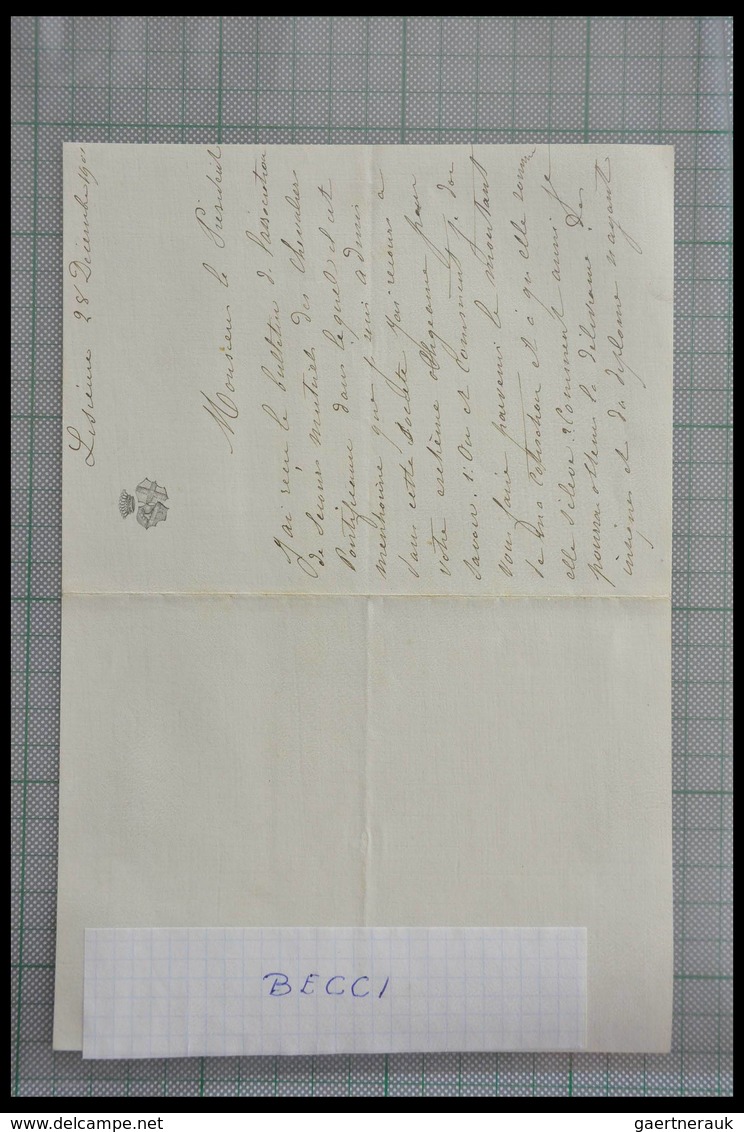 28 Décembre 190
Monsieur le Président
J'ai reçu le bulletin de l'association
de Secours mutuels des Chevaliers
Pontificaux dans lequel il est
mentionné que je suis admis
dans cette Société. J'ai recours à
votre extrême obligeance pour
savoir. 1: Où et Comment je dois
vous faire parvenir le montant
de ma Cotisation et à quelle somme
elle s'élève? Comment aussi je
pourrai obtenir la délivrance des
insignes et du diplome n'ayant
BECCI
gaertnerauk